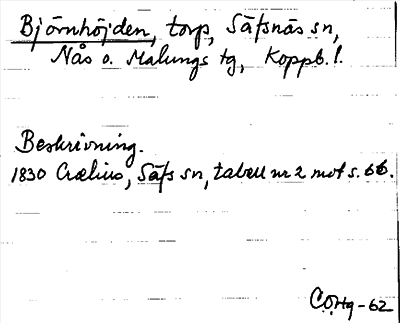 Björnhöjden, torp, Säfsnäs sn,
Nås o. Malungs tg, Koppb. l.
Beskrivning.
1830 Crælius, Säfs sn, tabell nr 2 mot s. 66.
C.O.Hg-62